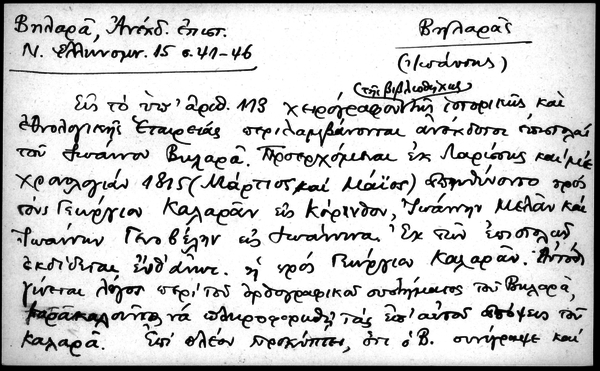 Βηλαρᾶ, Ἀνέκδ. ἐπιστ.
Ν. Ἑλληνομν. 15 σ. 41-46
Βηλαρᾶς
(Ἰωάννης)
τῆς βιβλιοθήκης
Εἰς τὸ ὑπ' ἀριθ. 113 χειρόγραφον τῆς ἱστορικῆς καὶ
ἐθνολογικῆς Ἑταιρείας περιλαμβάνονται ἀνέκδοτοι ἐπιστολαὶ
τοῦ Ἰωάννου Βηλαρᾶ. Προερχόμεναι ἐκ Λαρίσης καὶ μὲ
χρονολογίαν 1815 (Μάρτιος καὶ Μάϊος) ἀπηυθύνοντο πρὸς
τοὺς Γεώργιον Καλαρᾶν εἰς Κόρινθον, Ἰωάννην Μελᾶν καὶ
Ἰωάννην Γενοβέλην εἰς Ἰωάννινα. Ἐκ τῶν ἐπιστολῶν
ἐκδίδεται ἐνθ' ἀνωτ. ἡ πρὸς Γεώργιον Καλαρᾶν. Αὐτόθι
γίνεται λόγος περὶ τοῦ ὀρθογραφικοῦ συστήματος τοῦ Βηλαρᾶ,
παρακαλοῦντος νὰ πληροφορηθῇ τὰς ἐπ' αὐτοῦ ἀπόψεις τοῦ
Καλαρᾶ. Ἐπὶ πλέον προκύπτει, ὅτι ὁ Β. συνέγραψε καὶ